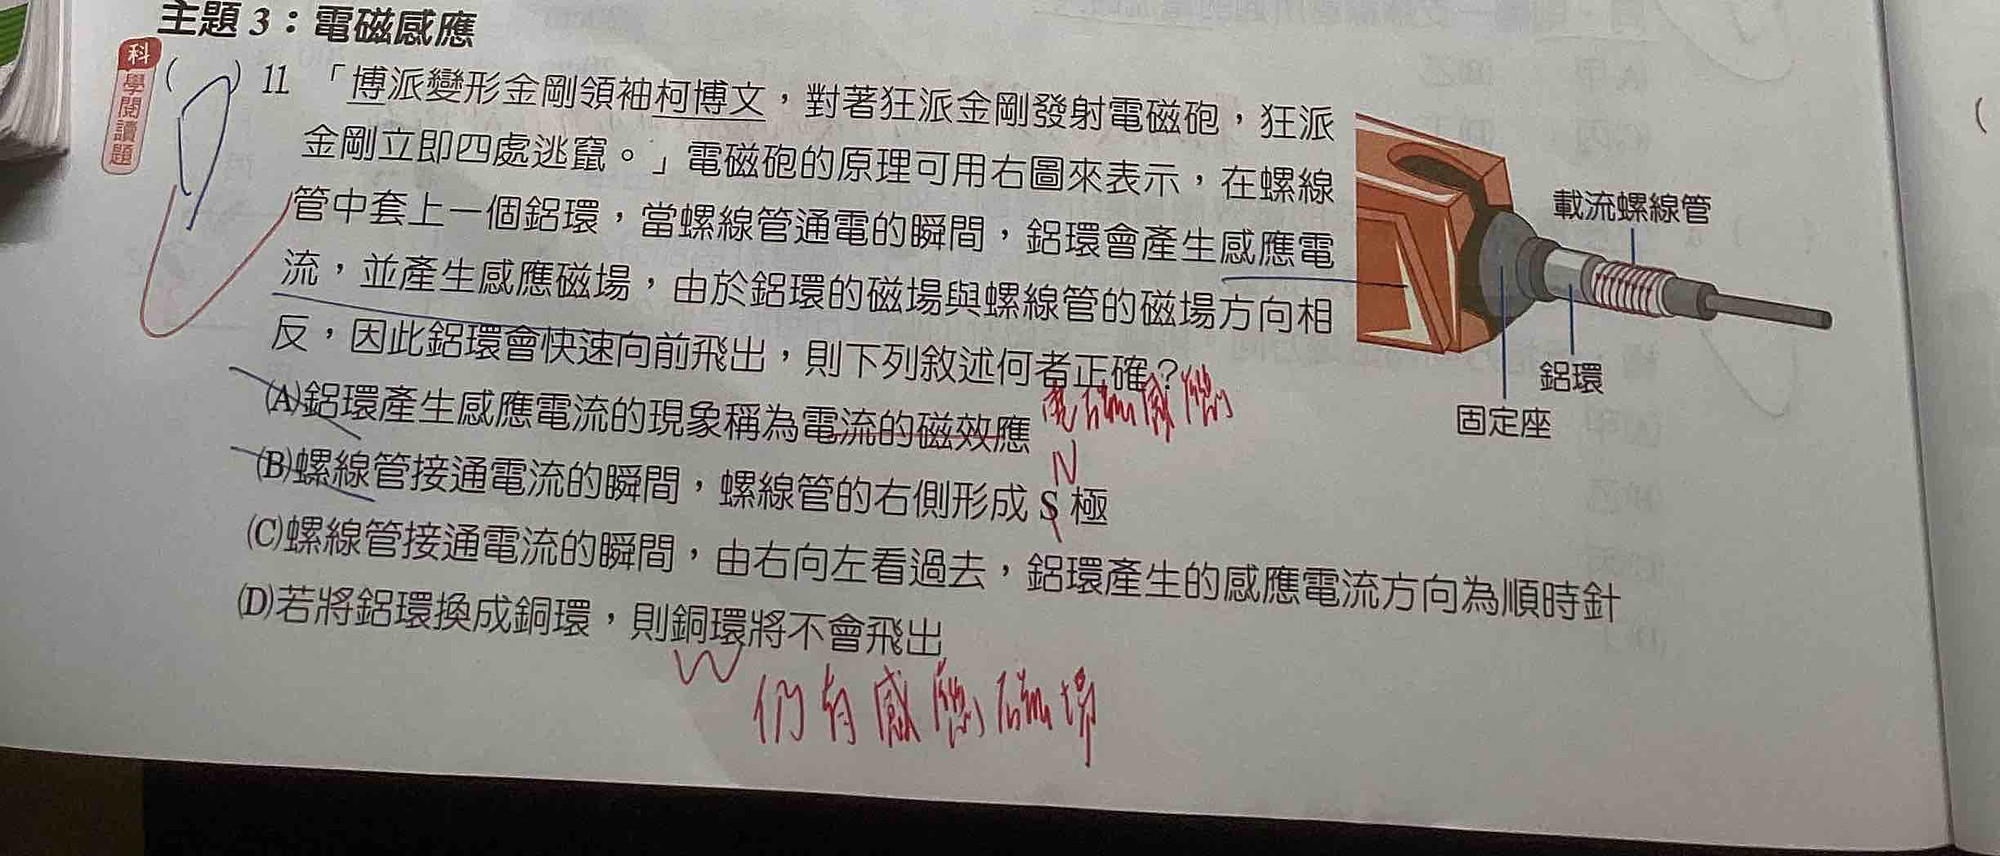 主題 3：電磁感應
科學閱讀題
(　) 11. 「博派變形金剛領袖柯博文，對著狂派金剛發射電磁砲，狂派
金剛立即四處逃竄。」電磁砲的原理可用右圖來表示，在螺線
管中套上一個鋁環，當螺線管通電的瞬間，鋁環會產生感應電
流，並產生感應磁場，由於鋁環的磁場與螺線管的磁場方向相
反，因此鋁環會快速向前飛出，則下列敘述何者正確？
載流螺線管
鋁環
固定座
(A)鋁環產生感應電流的現象稱為電流的磁效應
電磁感應
N
(B)螺線管接通電流的瞬間，螺線管的右側形成 S 極
(C)螺線管接通電流的瞬間，由右向左看過去，鋁環產生的感應電流方向為順時針
(D)若將鋁環換成銅環，則銅環將不會飛出
有感應磁場